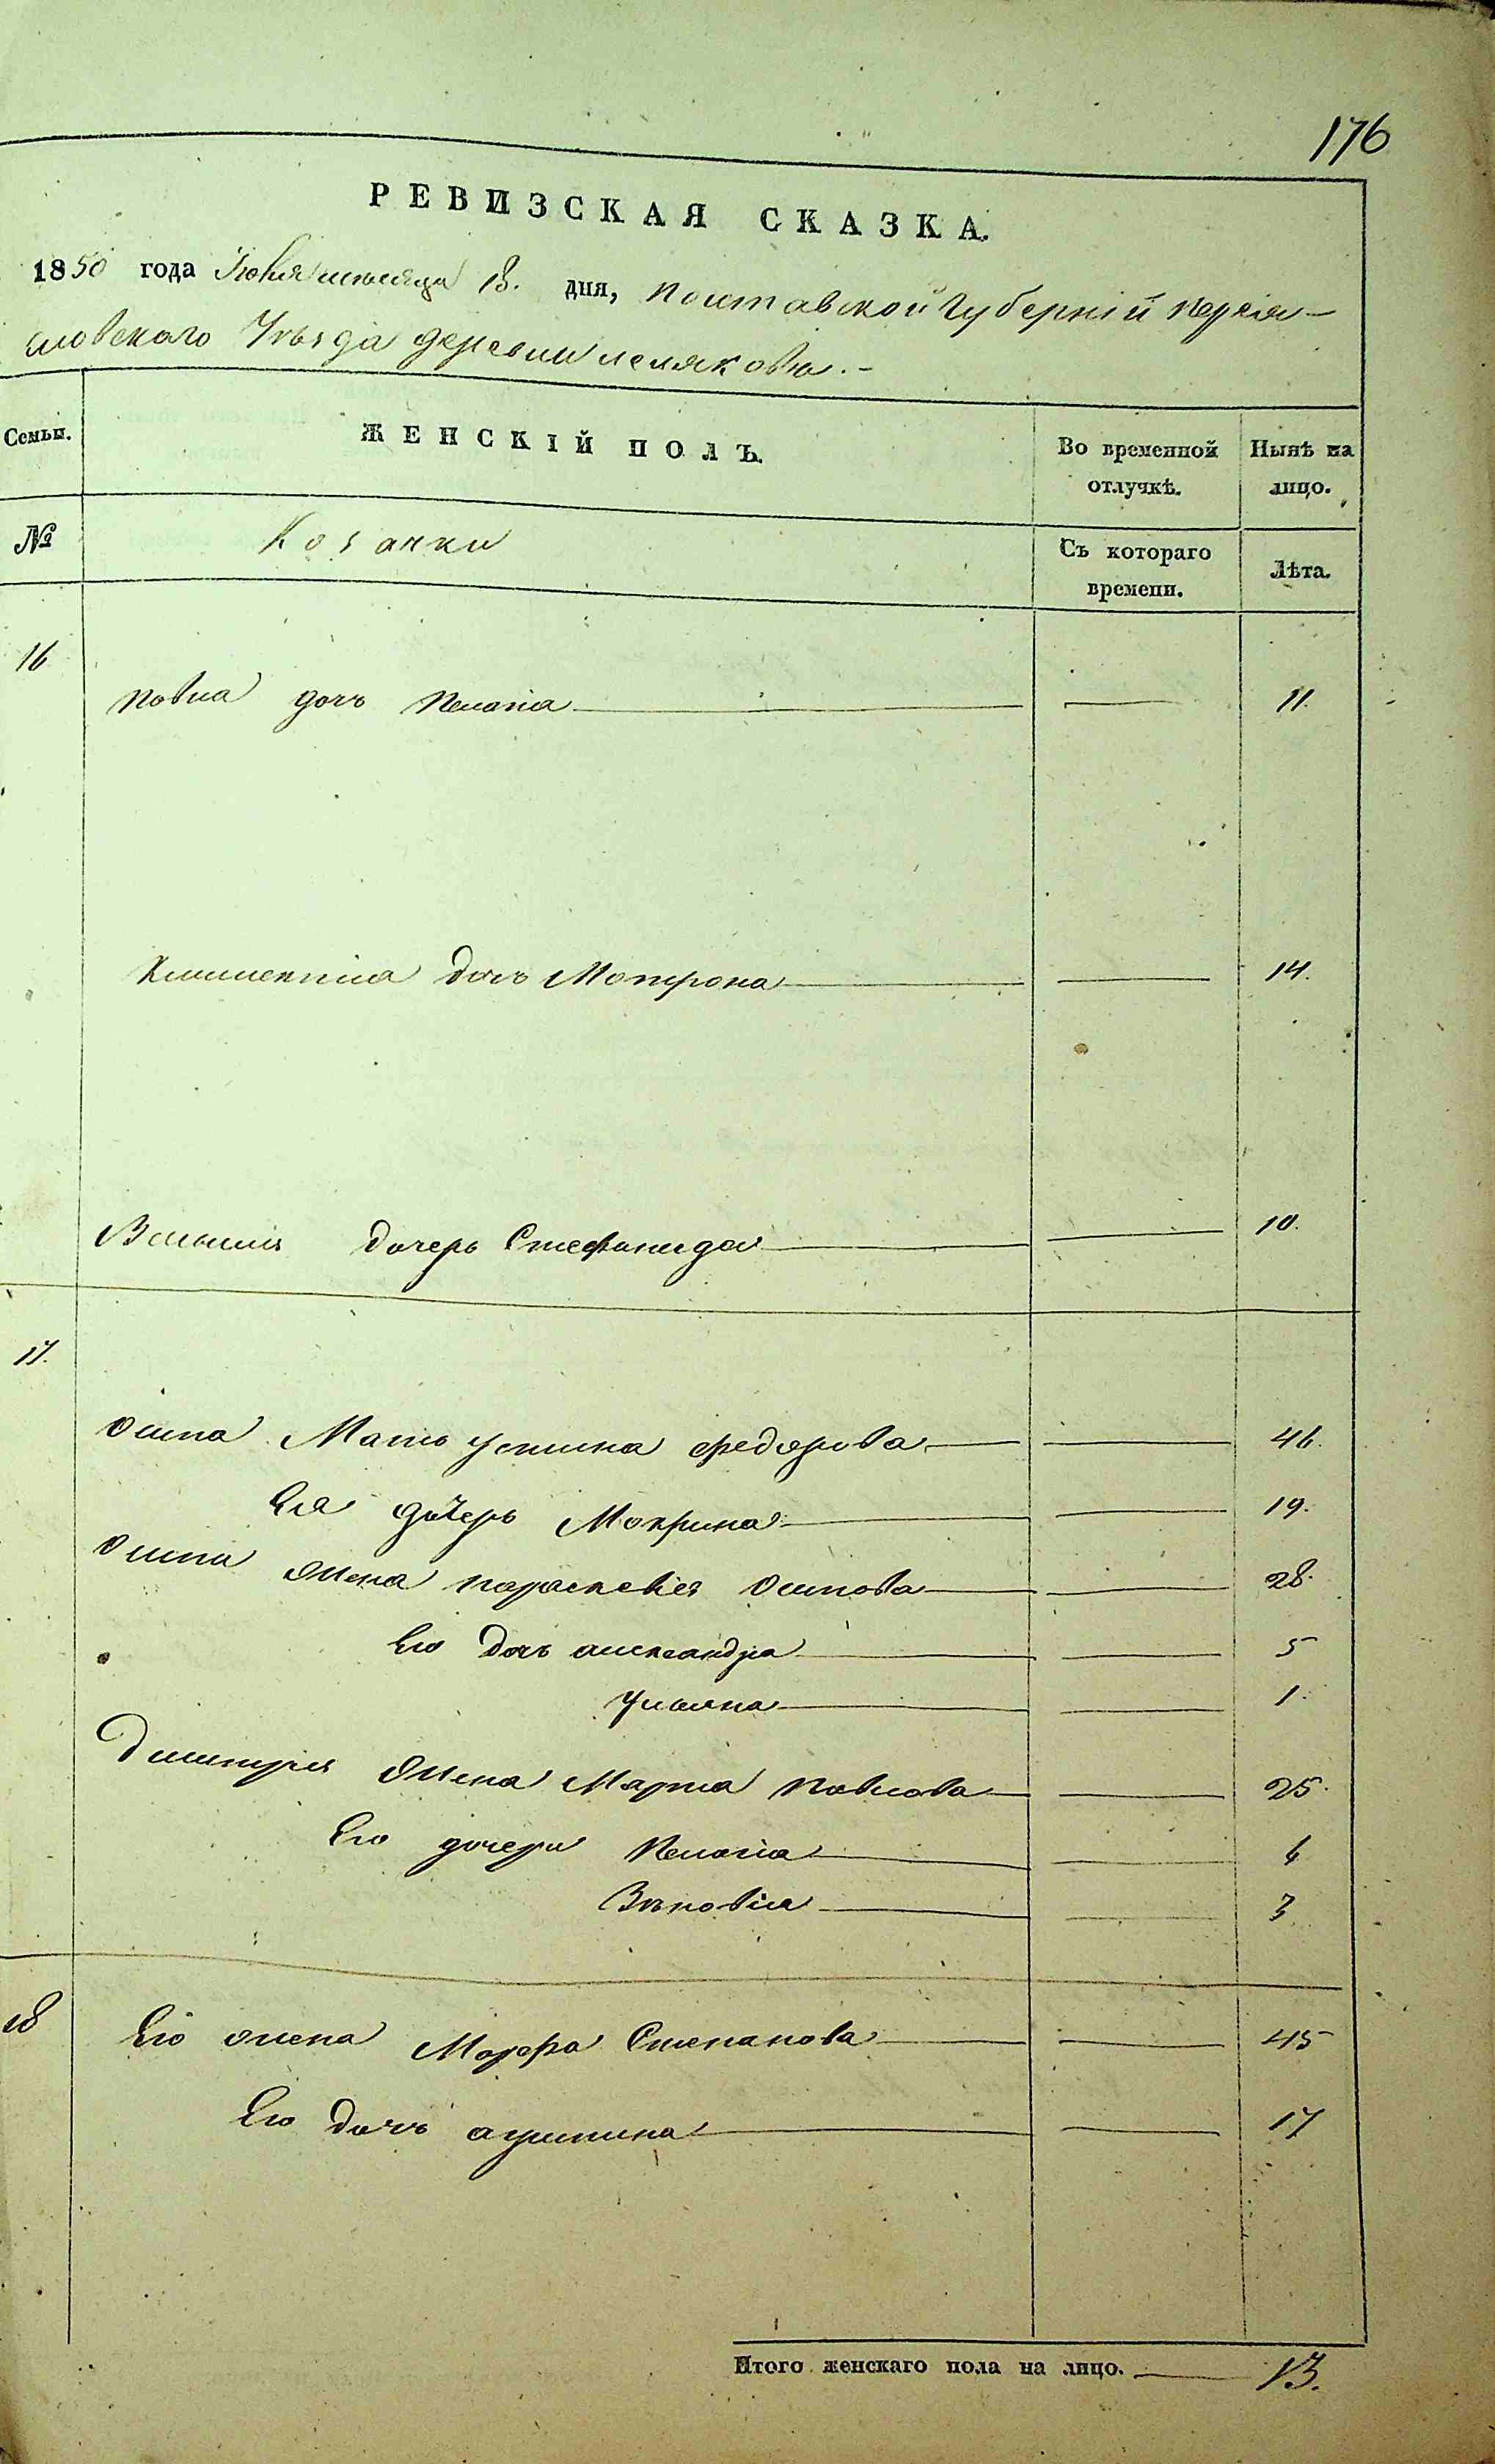 176
РЕВИЗСКАЯ СКАЗКА.
1850 года Июня месяца 18. дня, Полтавской Губерніи Перея-
словскаго Уѣзда деревни лемяковки. -
Семьи.
ЖЕНСКІЙ ПОЛЪ.
Во временной отлучкѣ.
Нынѣ на лицо.
№
Козачки
Съ котораго времени.
Лѣта.
16
Павла дочъ Пелагіа 11.
дочъ Мотрона 14.
Василія дочерь Стефанида 10.
17.
Осипа Мать Устина Федорова 46.
Ея дочерь Мокрина 19.
Осипа жена параскевія Осипова 28.
Его дочь александра 5
Ульяна 1.
Димитрія жена Марѳа Павлова 25.
Его дочери Пелагіа 6
Зѣновія 3
18 Его жена Марфа Степанова 45
Его дочъ агрипина 17
Итого женскаго пола на лицо. 13.